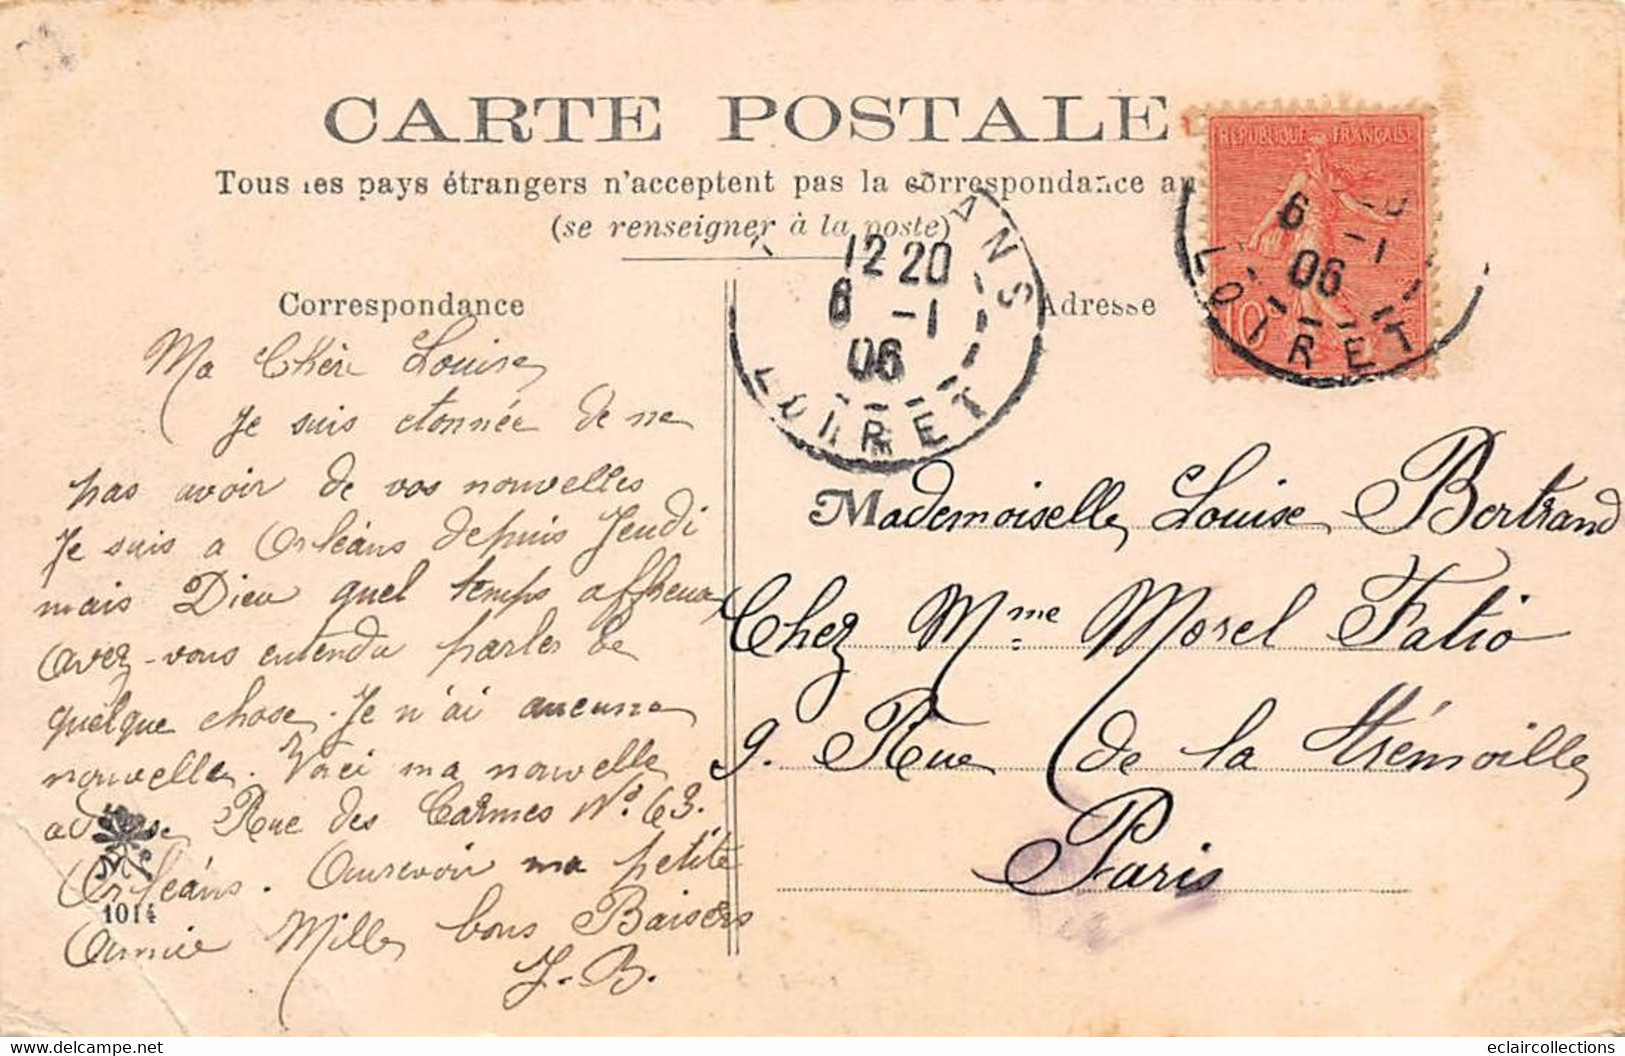 CARTE POSTALE
Tous les pays étrangers n'acceptent pas la correspondance au
(se renseigner à la poste)
Correspondance
Adresse
REPUBLIQUE FRANÇAISE
10
6 -1
06
LOIRET
ANS
12 20
6 -1
06
LOIRET
Ma Chère Louise
Je suis étonnée de ne
pas avoir de vos nouvelles
Je suis a Orléans depuis Jeudi
mais Dieu quel temps affreux
Avez-vous entendu parler de
quelque chose. Je n'ai aucune
nouvelle. Voici ma nouvelle
Rue des Carmes No 63.
Orléans. Aurevoir ma petite
Amie Mille bons Baisers
J. B.
1014
Mademoiselle Louise Bertrand
Chez Mme Morel Fatio
9. Rue de la trémoille
Paris
eclaircollections